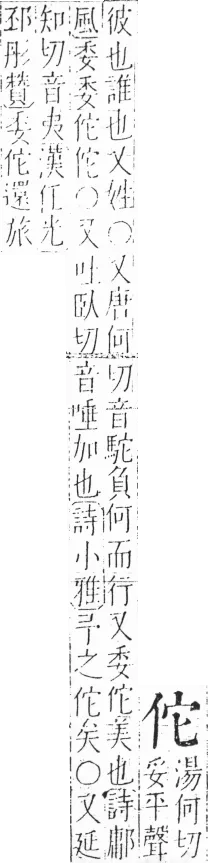 佗
湯何切
妥平聲
彼也誰也又姓○又唐何切音駝負何而行又委佗美也詩鄘
風委委佗佗○又吐臥切音唾加也詩小雅予之佗矣○又延
知切音夷漢任光
邳彤贊委佗還旅